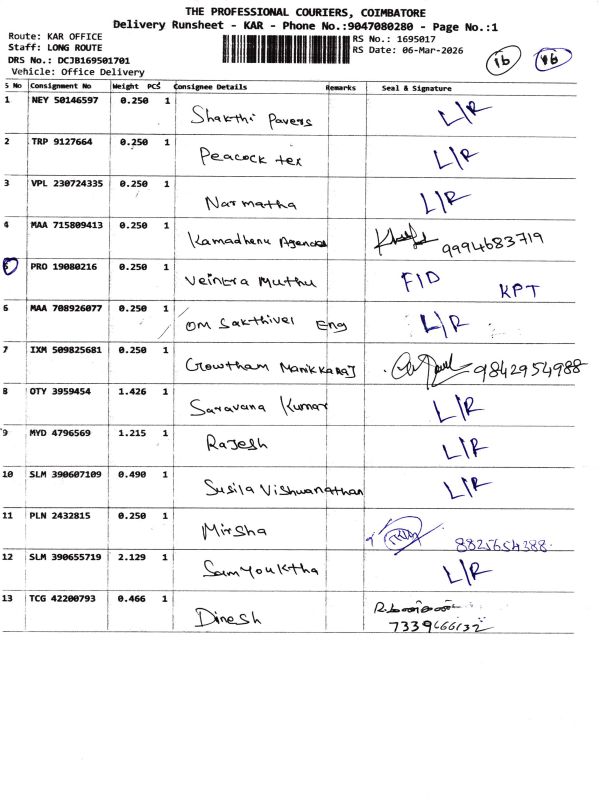 THE PROFESSIONAL COURIERS, COIMBATORE
Delivery Runsheet - KAR - Phone No.:9047080280 - Page No.:1
Route: KAR OFFICE
Staff: LONG ROUTE
DRS No.: DCJB169501701
Vehicle: Office Delivery
RS No.: 1695017
RS Date: 06-Mar-2026
16 V6
S No Consignment No Weight PCS Consignee Details Remarks Seal & Signature
1 NEY 50146597 0.250 1 Shakthi Pavers L/R
2 TRP 9127664 0.250 1 Peacock tex L/R
3 VPL 230724335 0.250 1 Narmatha L/R
4 MAA 715809413 0.250 1 Kamadhenu Agencies 9994683719
5 PRO 19080216 0.250 1 Veintra Muthu F/D KPT
6 MAA 708926077 0.250 1 OM Sakthivel Eng L/R
7 IXM 509825681 0.250 1 Gowtham Manikkaraj 9842954988
8 OTY 3959454 1.426 1 Saravana Kumar L/R
9 MYD 4796569 1.215 1 Rajesh L/R
10 SLM 390607109 0.490 1 Susila Vishwanathan L/R
11 PLN 2432815 0.250 1 Mirsha 8825654388
12 SLM 390655719 2.129 1 Samyouktha L/R
13 TCG 42200793 0.466 1 Dinesh
7339666132